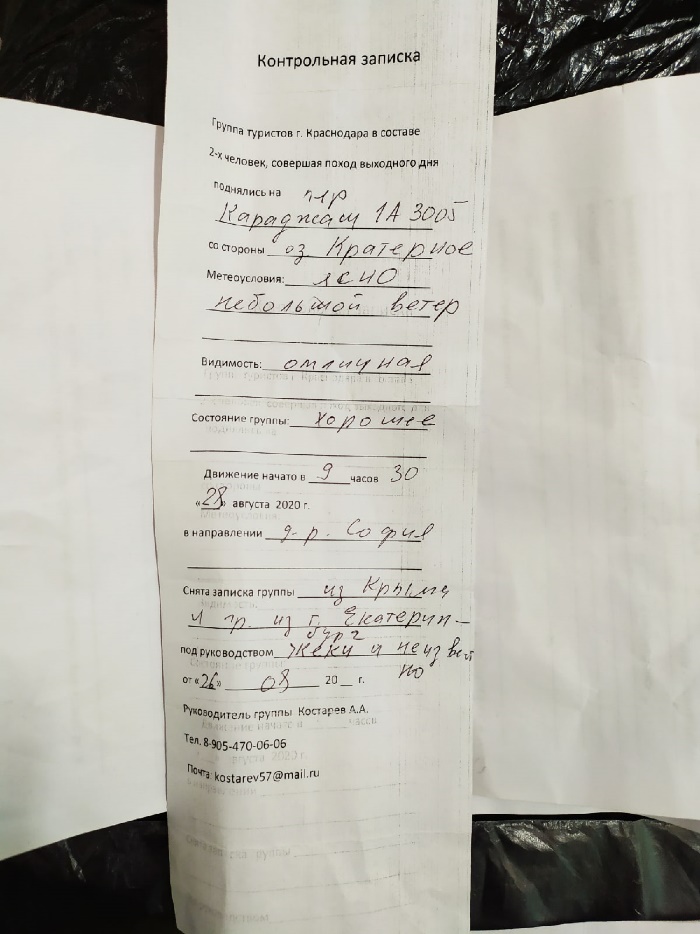 Контрольная записка
Группа туристов г. Краснодара в составе
2-х человек, совершая поход выходного дня
поднялись на пер
Караджаш 1А 3005
со стороны оз Кратерное
Метеоусловия: ясно
небольшой ветер
Видимость: отличная
Состояние группы: хорошее
Движение начато в 9 часов 30
«28» августа 2020 г.
в направлении д.р. София
Снята записка группы из Крыма
и гр. из г. Екатерин-
бург
под руководством Жеки и неизвест
но
от «26» 08 20__ г.
Руководитель группы Костарев А.А.
Тел. 8-905-470-06-06
Почта: kostarev57@mail.ru